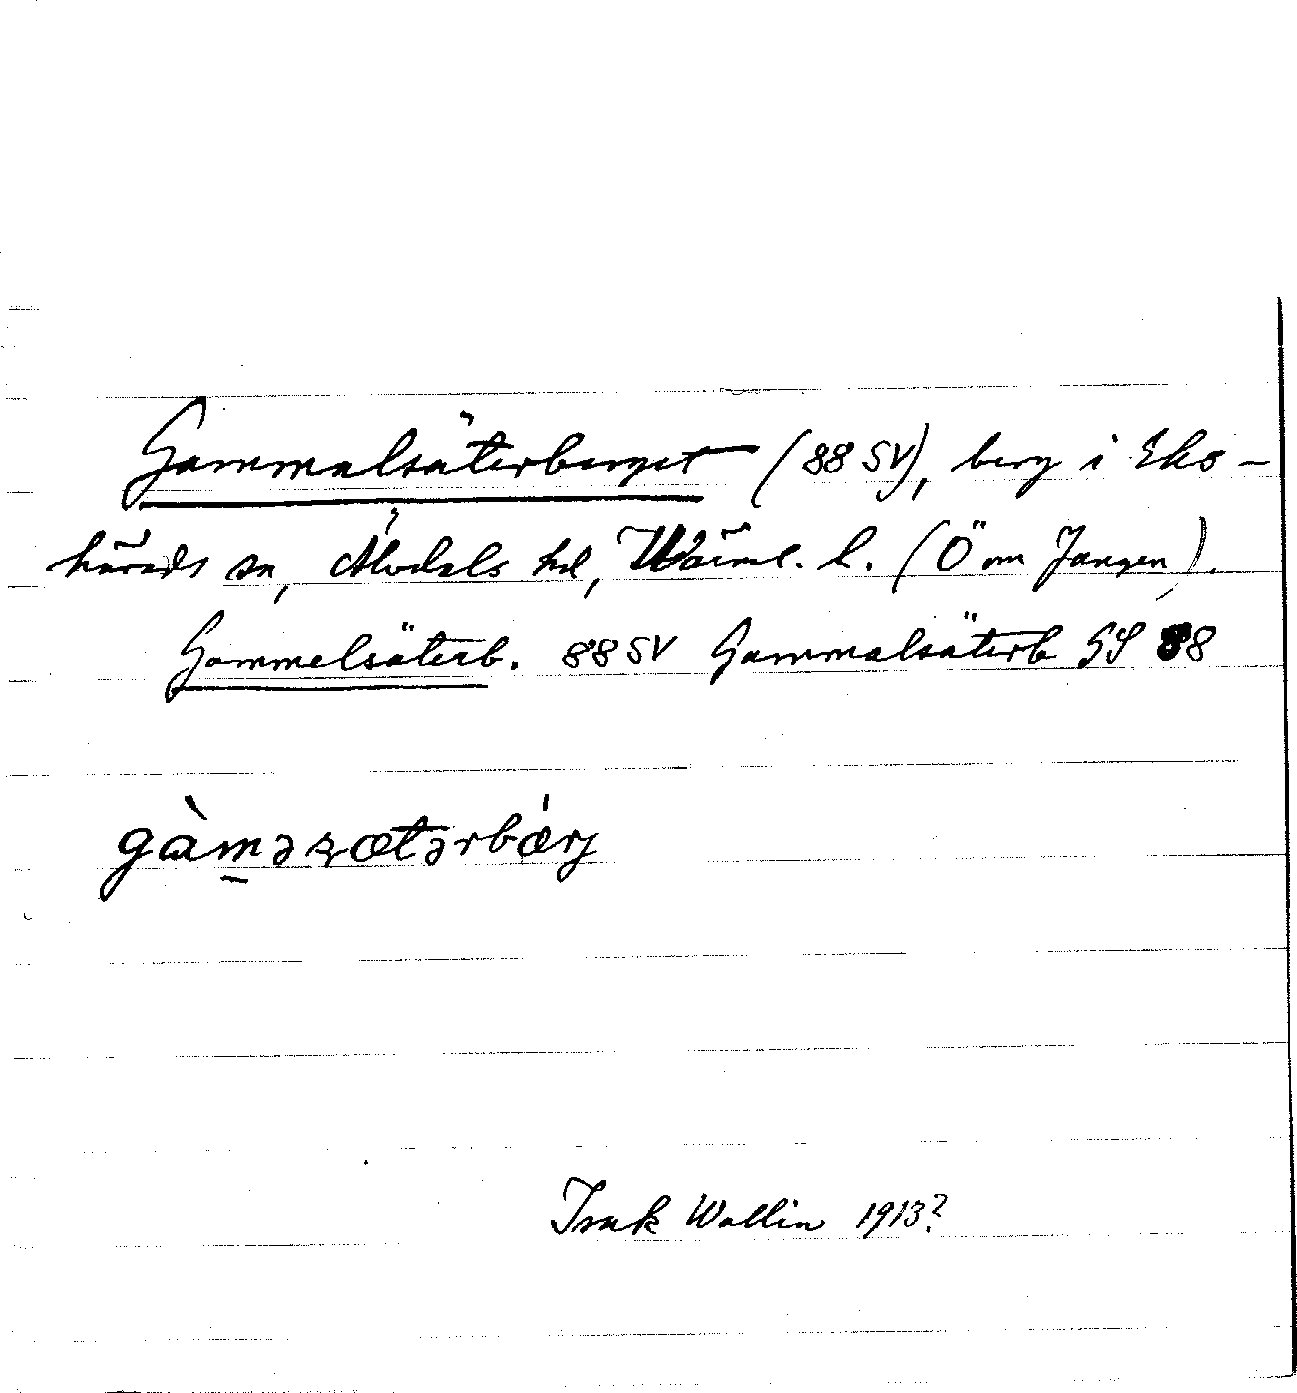 Gammalsäterberget (88 SV), berg i Eks-
härads sn, Älvdals hd, Värml. l. (Ö om Jangen).
Gammelsäterb. 88 SV Gammalsäterb GS 88
gàmǝʂætǝrbǽrj
Isak Wallin 1913?